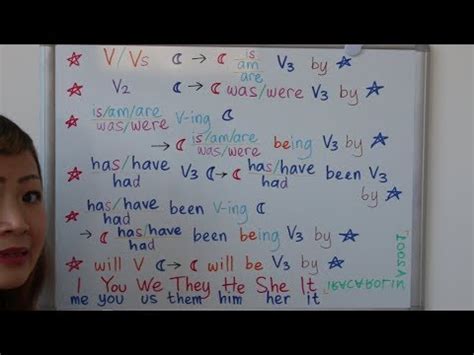 ☆ V/Vs ☾ → ☾ is/am/are V3 by ☆
☆ V2 ☾ → ☾ was/were V3 by ☆
☆ is/am/are was/were V-ing ☾
→ ☾ is/am/are was/were being V3 by ☆
☆ has/have had V3 ☾ → ☾ has/have had been V3
by ☆
☆ has/have had been V-ing ☾
→ ☾ has/have had been being V3 by ☆
☆ will V ☾ → ☾ will be V3 by ☆
I You We They He She It
me you us them him her it